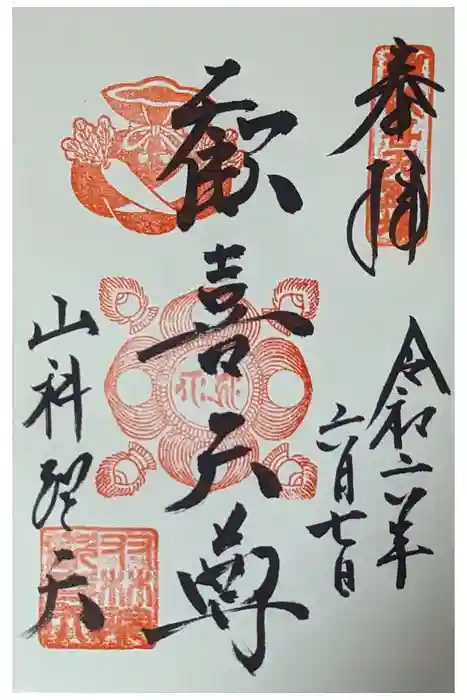 奉拝
令和六年
六月七日
歓喜天尊
山科聖天